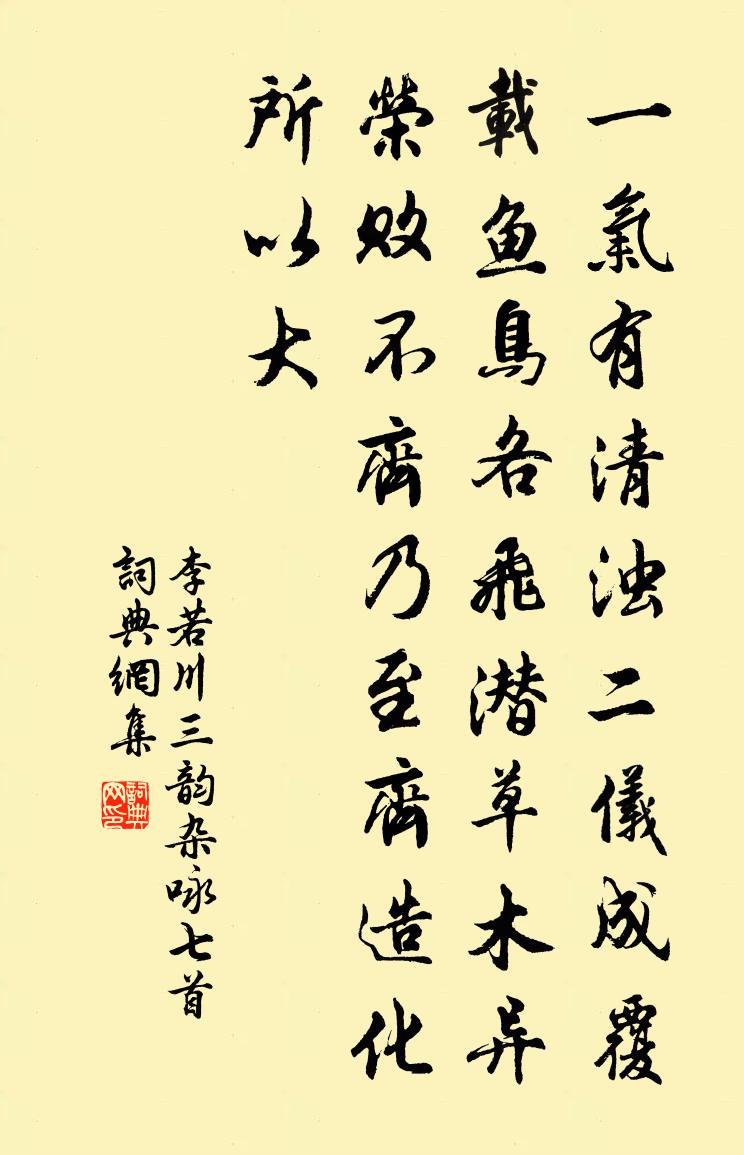 一氣有清浊二儀成覆
載鱼鳥各飛潜草木异
榮败不齊乃至齊造化
所以大
李若川三韵杂咏七首
詞典網集
詞典
网印